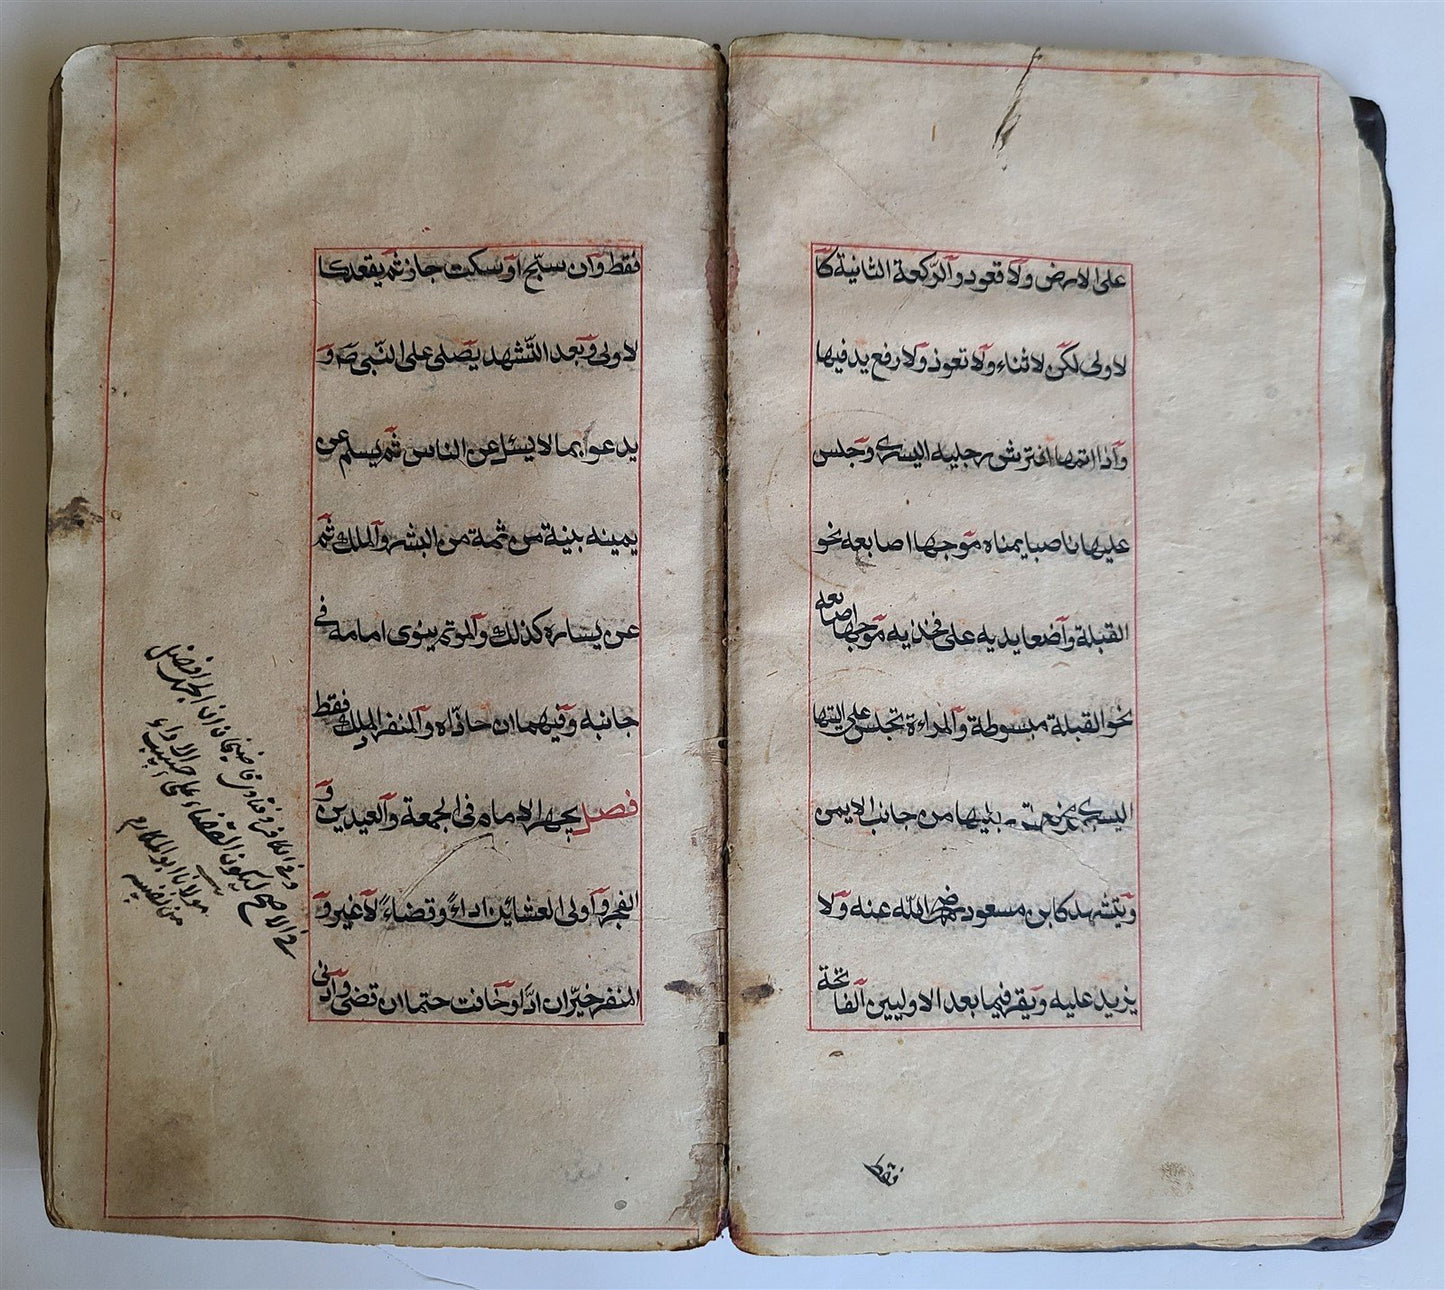 على الارض ولا قعود والركعة الثانية كا
لاولى لكن لاثناء ولا تعوذ ولا رفع يد فيها
واذا اتمها افترش رجليه اليسرى وجلس
عليها ناصبا يمناه موجها اصابعه نحو
القبلة واضعا يديه على فخذيه موجها اصابعه
نحو القبلة مبسوطة والمراءة تجلس على اليتها
اليسرى مخرجة رجليها من جانب الايمن
ويتشهد كابن مسعود رضى الله عنه ولا
يزيد عليه ويقر فيما بعد الاوليين الفاتحة
فقط
فقط وان سبّح او سكت جاز ثم يقعد كا
لاولى وبعد التّشهد يصلى على النّبى ص و
يدعوا بما لا يسئل عن الناس ثم يسلم عن
يمينه بنية من ثمة من البشر والملك ثم
عن يساره كذلك والموتم ينوى امامه فى
جانبه وفيهما ان حاذاه والمنفرد الملك فقط
فصل يجهر الامام فى الجمعة والعيدين و
الفجر واولى العشائين اداءً وقضاءً لا غير و
المنفرد خيّر ان ادّا وخافت حتما ان قضى وادنى
ان الجهر افضل
فى الاصح ليكون القضاء على حسب الاداء
مولانا ابو المكارم